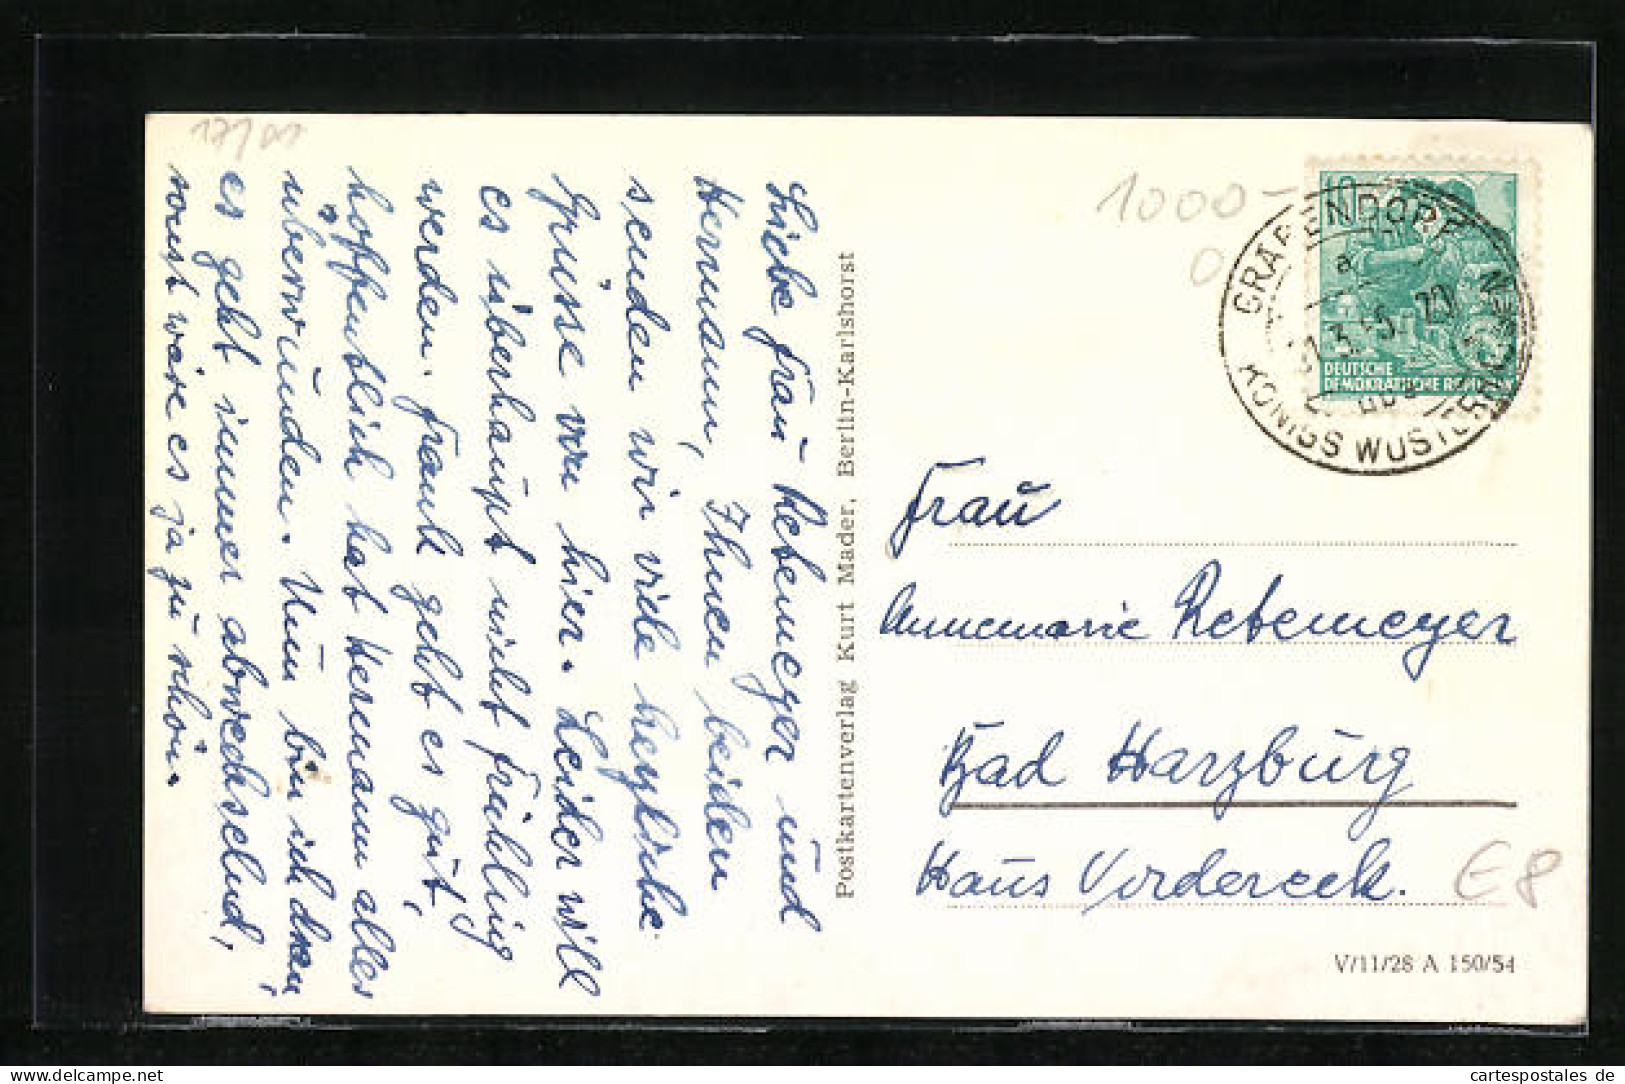 17/01
Liebe Frau Rebemeyer und
Hermann, Ihnen beiden
senden wir viele herzliche
Grüsse von hier. Leider will
es überhaupt nicht Frühling
werden. Frank geht es gut,
hoffentlich hat Hermann alles
überwunden. Nun bin ich dran,
es geht immer abwechselnd,
sonst wäre es ja zu schön.
Postkartenverlag Kurt Mader, Berlin-Karlshorst
1000-
0
10
DEUTSCHE
DEMOKRATISCHE
GRÄBENDORF
a
KÖNIGS WUSTERHAUSEN
Frau
Annemarie Rebemeyer
Bad Harzburg
Haus Vordereck.
E 8
V/11/28 A 150/54
cartespostales de